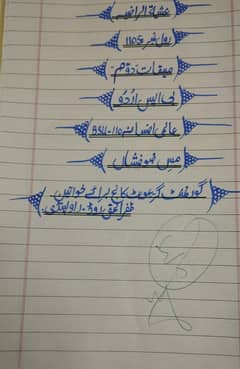 عشاء الرا
رول نمبر 1105
میقات دوئم
بی ایس اُردُو
عالمی افسانہ BSU-110
مِس ضوفشاں
گورنمنٹ گریجویٹ کالج برائے خواتین
ظفر الحق روڈ، راولپنڈی